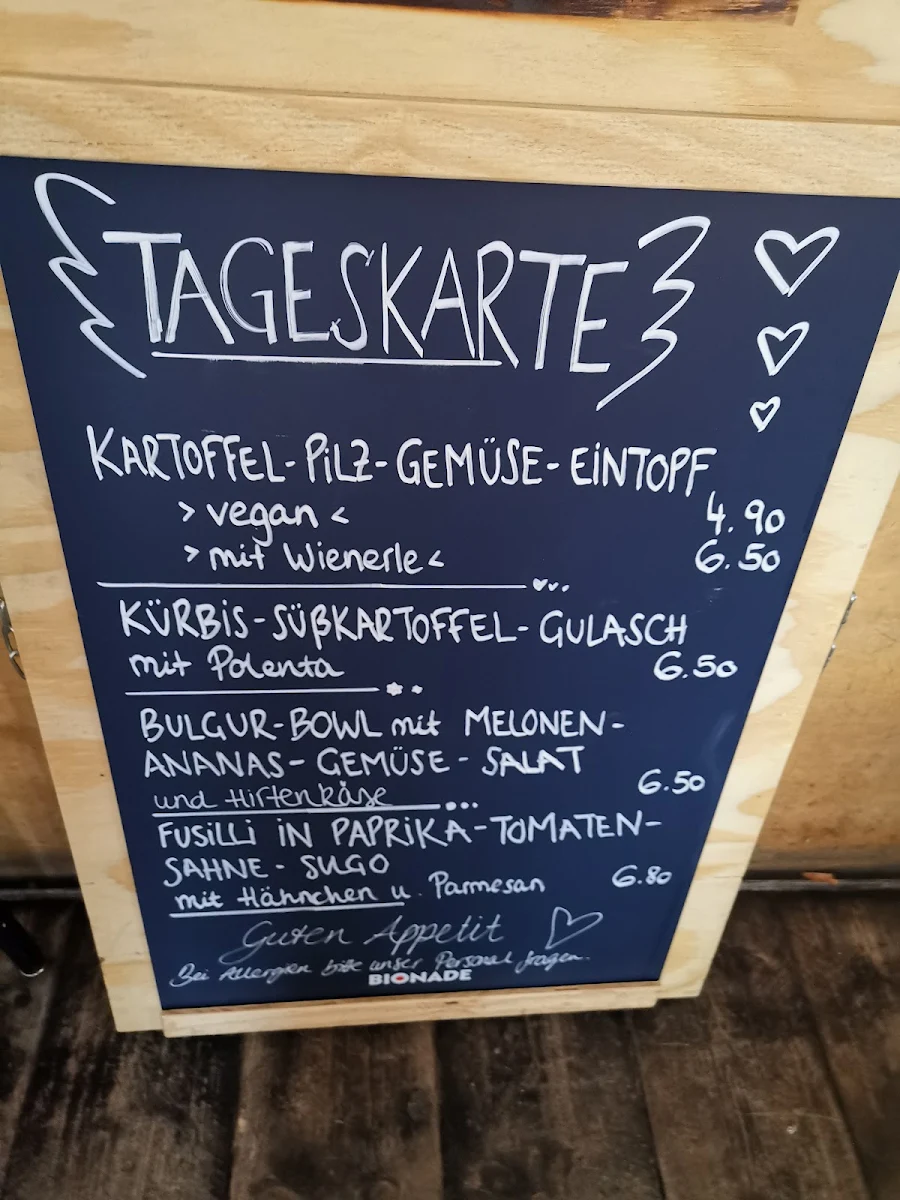 TAGESKARTE
KARTOFFEL-PILZ-GEMÜSE-EINTOPF
> vegan < 4.90
> mit Wienerle < 6.50
KÜRBIS-SÜßKARTOFFEL-GULASCH
mit Polenta 6.50
BULGUR-BOWL mit MELONEN-
ANANAS-GEMÜSE-SALAT
und Hirtenkäse 6.50
FUSILLI IN PAPRIKA-TOMATEN-
SAHNE-SUGO
mit Hähnchen u. Parmesan 6.80
Guten Appetit
Bei Allergien bitte unser Personal fragen.
BIONADE